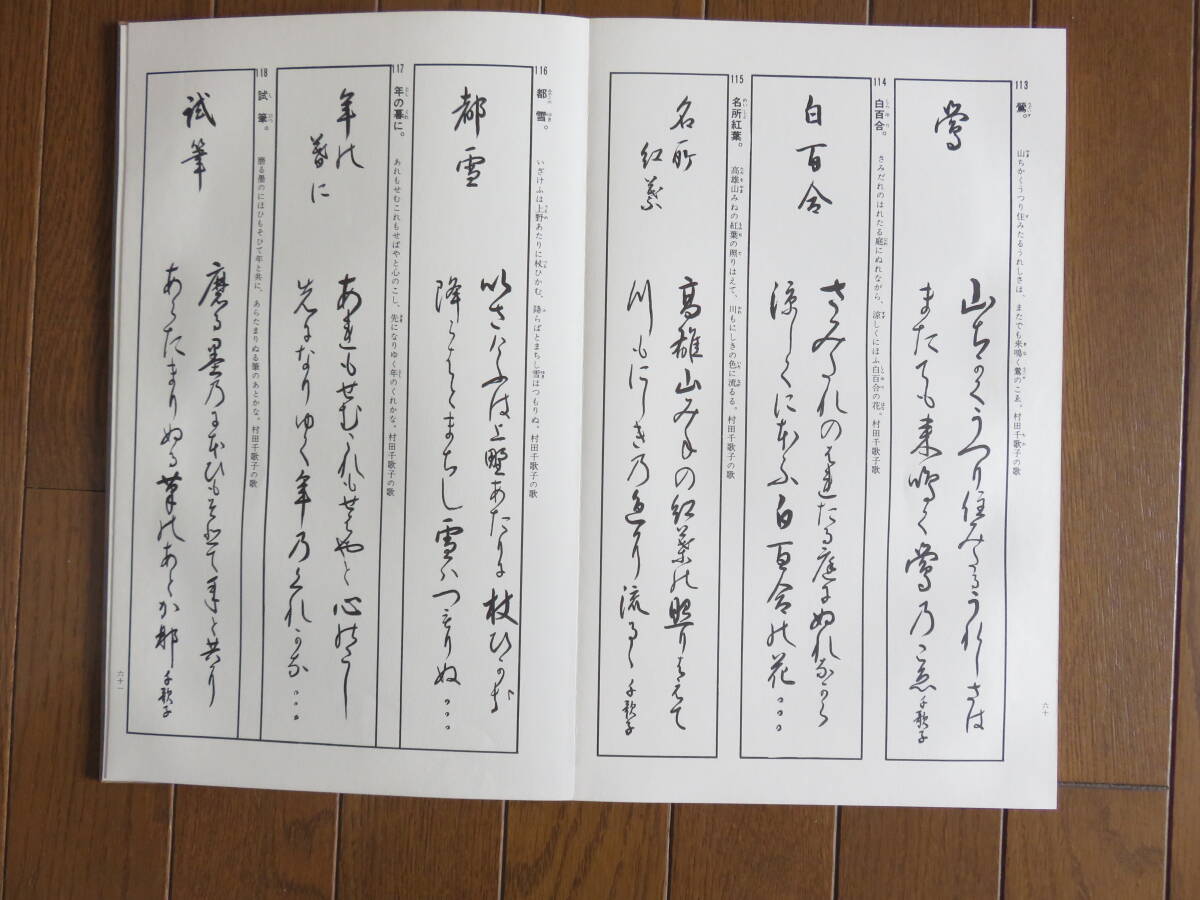 113 鶯。
山ちかくうつり住みたるうれしさは、またでも来鳴く鶯のこゑ。村田千歌子の歌
鶯
山ちかくうつり住みたるうれしさは
またても来鳴く鶯乃こ恵 千歌子
六十
114 白百合。
さみだれのはれたる庭にぬれながら、涼しくにほふ白百合の花。村田千歌子の歌
白百合
さみたれのはれたる庭にぬれなから
涼しくにほふ白百合の花。。。
115 名所紅葉。
高雄山みねの紅葉の照りはえて、川もにしきの色に流るる。村田千歌子の歌
名所
紅葉
高雄山みねの紅葉の照りはえて
川もにしき乃色に流るゝ 千歌子
116 都雪。
いざけふは上野あたりに杖ひかむ、降らばとまちし雪はつもりぬ。村田千歌子の歌
都雪
以さけふは上野あたりに杖ひかむ
降らはとまちし雪ハつもりぬ。。。
117 年の暮に。
あれもせむこれもせばやと心のこし、先になりゆく年のくれかな。村田千歌子の歌
年の
暮に
あれもせむこれもせはやと心のこし
先になりゆく年乃くれかな。。。
118 試筆。
磨る墨のにほひもそひて年と共に、あらたまりぬる筆のあとかな。村田千歌子の歌
試筆
磨る墨乃にほひもそひて年と共に
あらたまりぬる筆のあとか那 千歌子
六十一